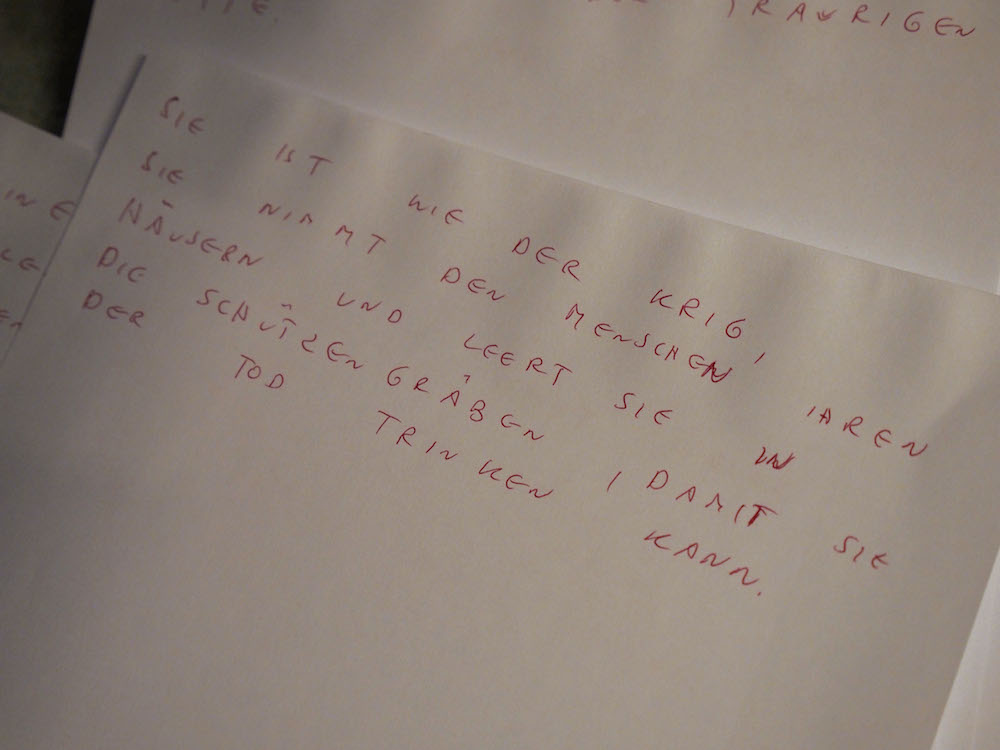 TRAURIGEN
SIE IST WIE DER KRIG,
SIE NIMMT DEN MENSCHEN IHREN
HÄUSERN UND LEERT SIE IN
DIE SCHÜTZENGRÄBEN, DAMIT SIE
DER TOD TRINKEN KANN.